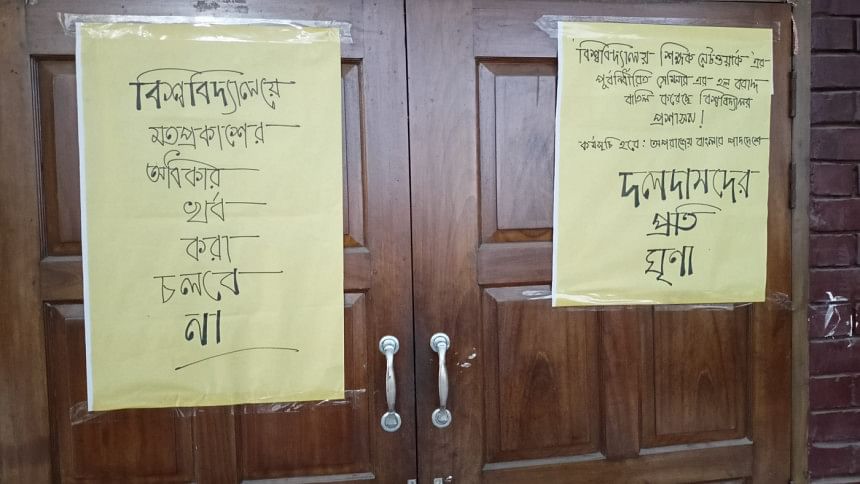 বিশ্ববিদ্যালয়ে
মতপ্রকাশের
অধিকার
খর্ব
করা
চলবে
না
বিশ্ববিদ্যালয় শিক্ষক নেটওয়ার্ক এর
পূর্বনির্ধারিত সেমিনার এর হল বরাদ্দ
বাতিল করেছে বিশ্ববিদ্যালয়
প্রশাসন!
কর্মসূচি হবে: অপরাজেয় বাংলার পাদদেশে
দলদাসদের
প্রতি
ঘৃণা